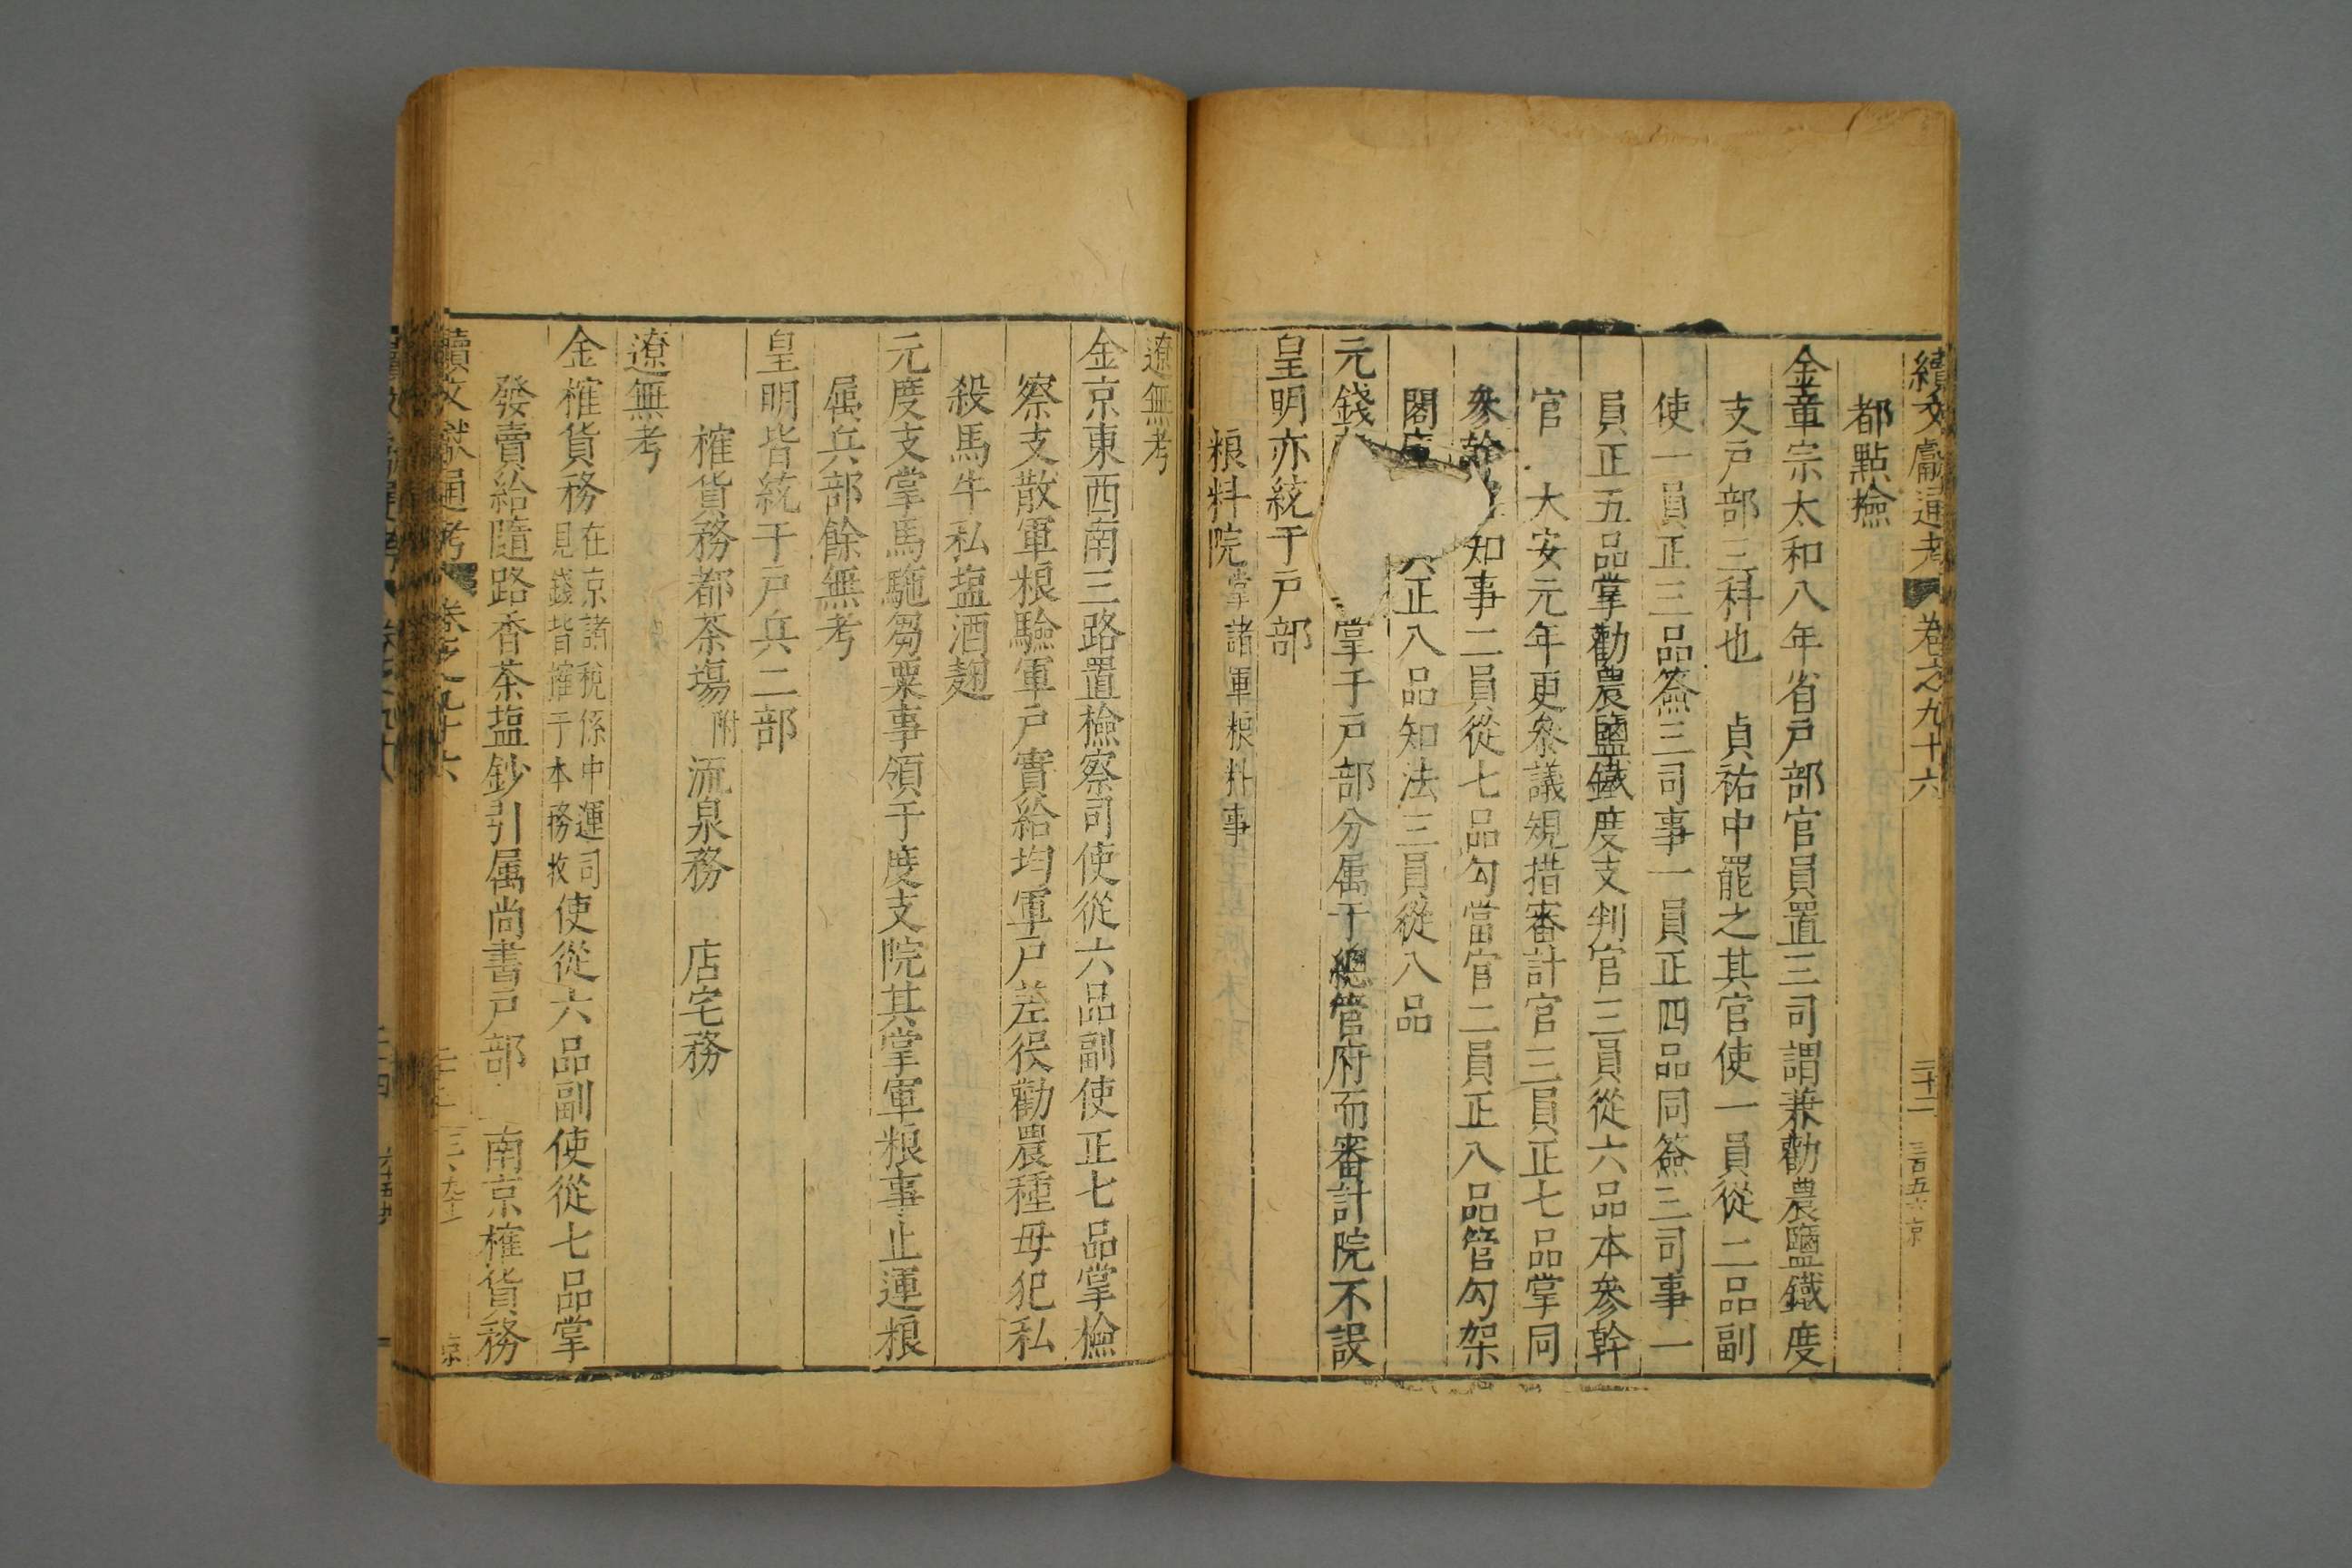 續文獻通考 卷之九十六 二十二
都點檢
金章宗太和八年省戶部官員置三司謂兼勸農鹽鐵度
支戶部三科也 貞祐中罷之其官使一員從二品副
使一員正三品簽三司事一員正四品同簽三司事一
員正五品掌勸農鹽鐵度支判官三員從六品本參幹
官 大安元年更叅議規措審計官三員正七品掌同
叅幹 知事二員從七品勾當官二員正八品管勾架
閣庫 正八品知法三員從八品
元錢 掌于戶部分属于總管府而審計院不設
皇明亦統于戶部
粮料院 掌諸軍粮料事
遼無考
金京東西南三路置檢察司使從六品副使正七品掌檢
察支散軍粮驗軍戶實給均軍戶差役勸農種毋犯私
殺馬牛私塩酒麹
元度支掌馬駞芻粟事領于度支院其掌軍粮事止運粮
属兵部餘無考
皇明皆統于戶兵二部
榷貨務都茶場 附 流泉務 店宅務
遼無考
金榷貨務 在京諸稅係中運司
見錢皆搉于本務收 使從六品副使從七品掌
發賣給隨路香茶塩鈔引属尚書戶部 南京榷貨務
續文獻通考 卷之九十六